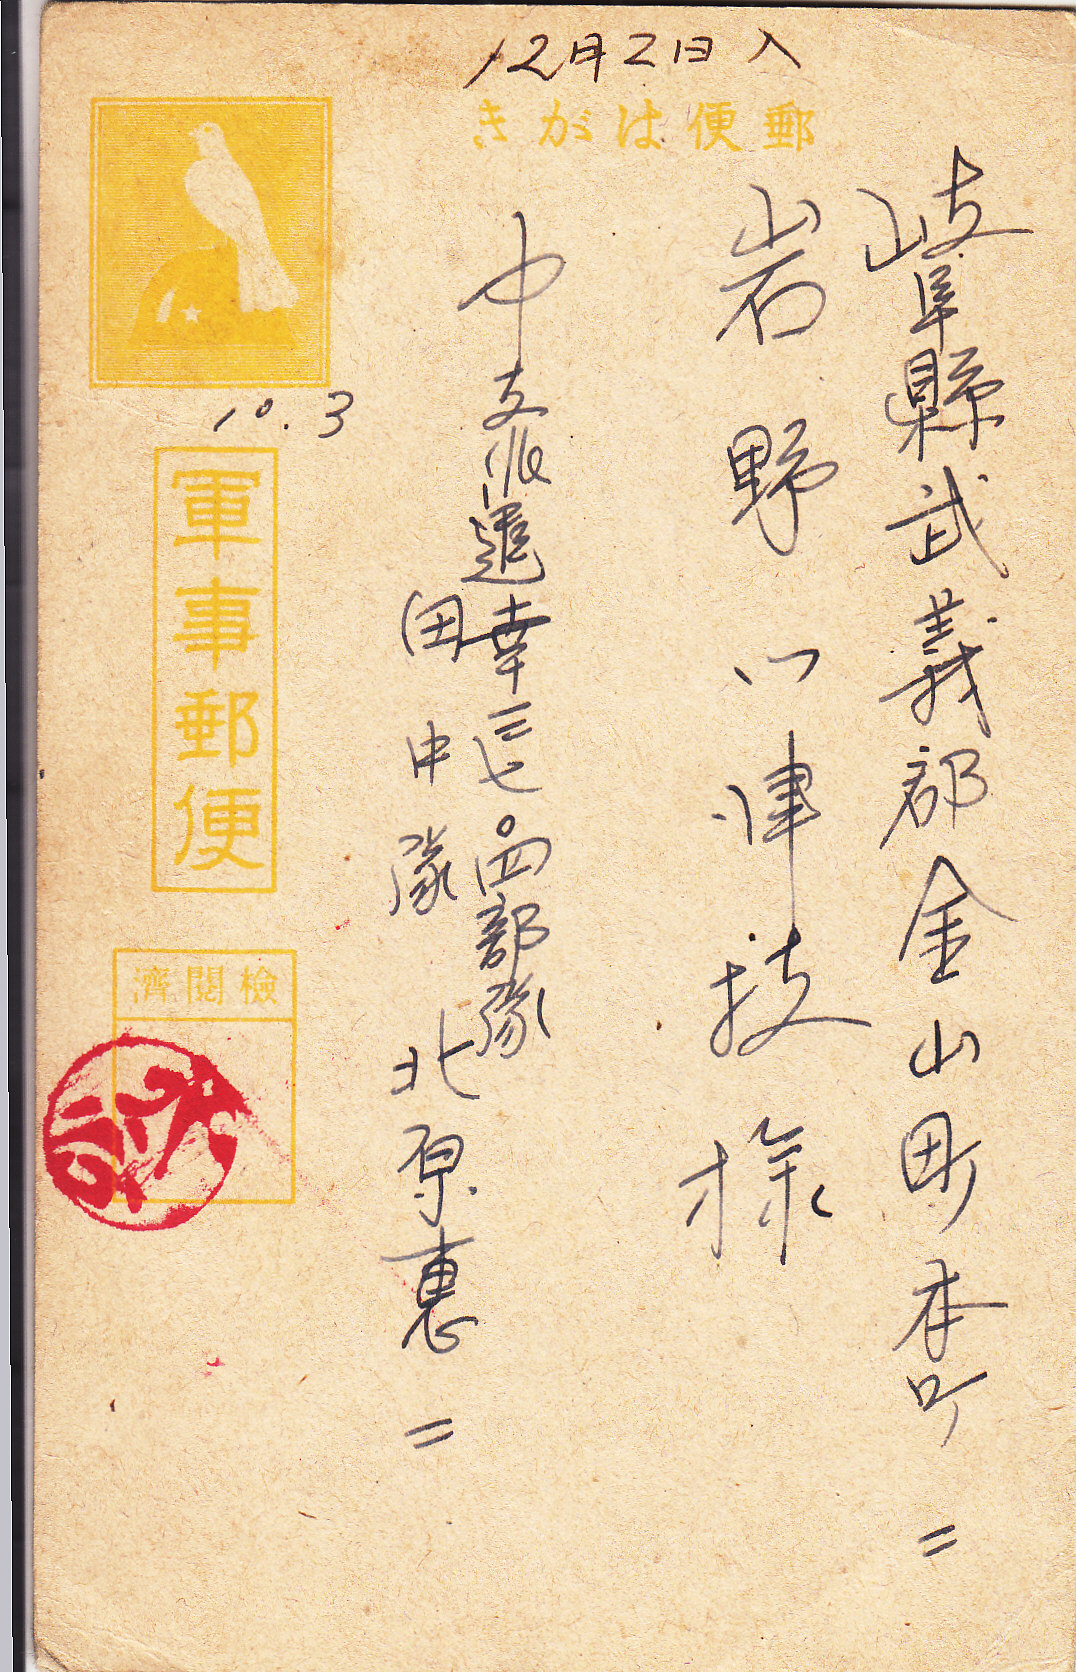 12月2日入
郵便はがき
岐阜縣武義郡金山町本町
岩野八津技様
中支派遣幸三七〇四部隊
田中隊
北原惠二
10.3
軍事郵便
検閲済